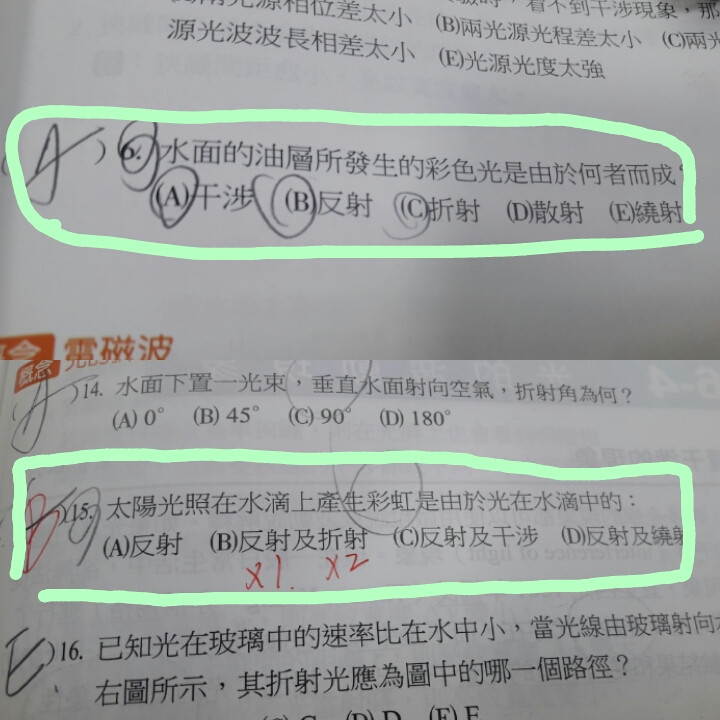 源相位差太小 (B)兩光源光程差太小 (C)兩光
源光波波長相差太小 (E)光源光度太強
A )6. 水面的油層所發生的彩色光是由於何者而成?
(A)干涉 (B)反射 (C)折射 (D)散射 (E)繞射
電磁波
概念
A )14. 水面下置一光束,垂直水面射向空氣,折射角為何?
(A) 0° (B) 45° (C) 90° (D) 180°
B )15. 太陽光照在水滴上產生彩虹是由於光在水滴中的:
(A)反射 (B)反射及折射 (C)反射及干涉 (D)反射及繞射
x1 x2
E )16. 已知光在玻璃中的速率比在水中小,當光線由玻璃射向
右圖所示,其折射光應為圖中的哪一個路徑?
(D) D (E) E